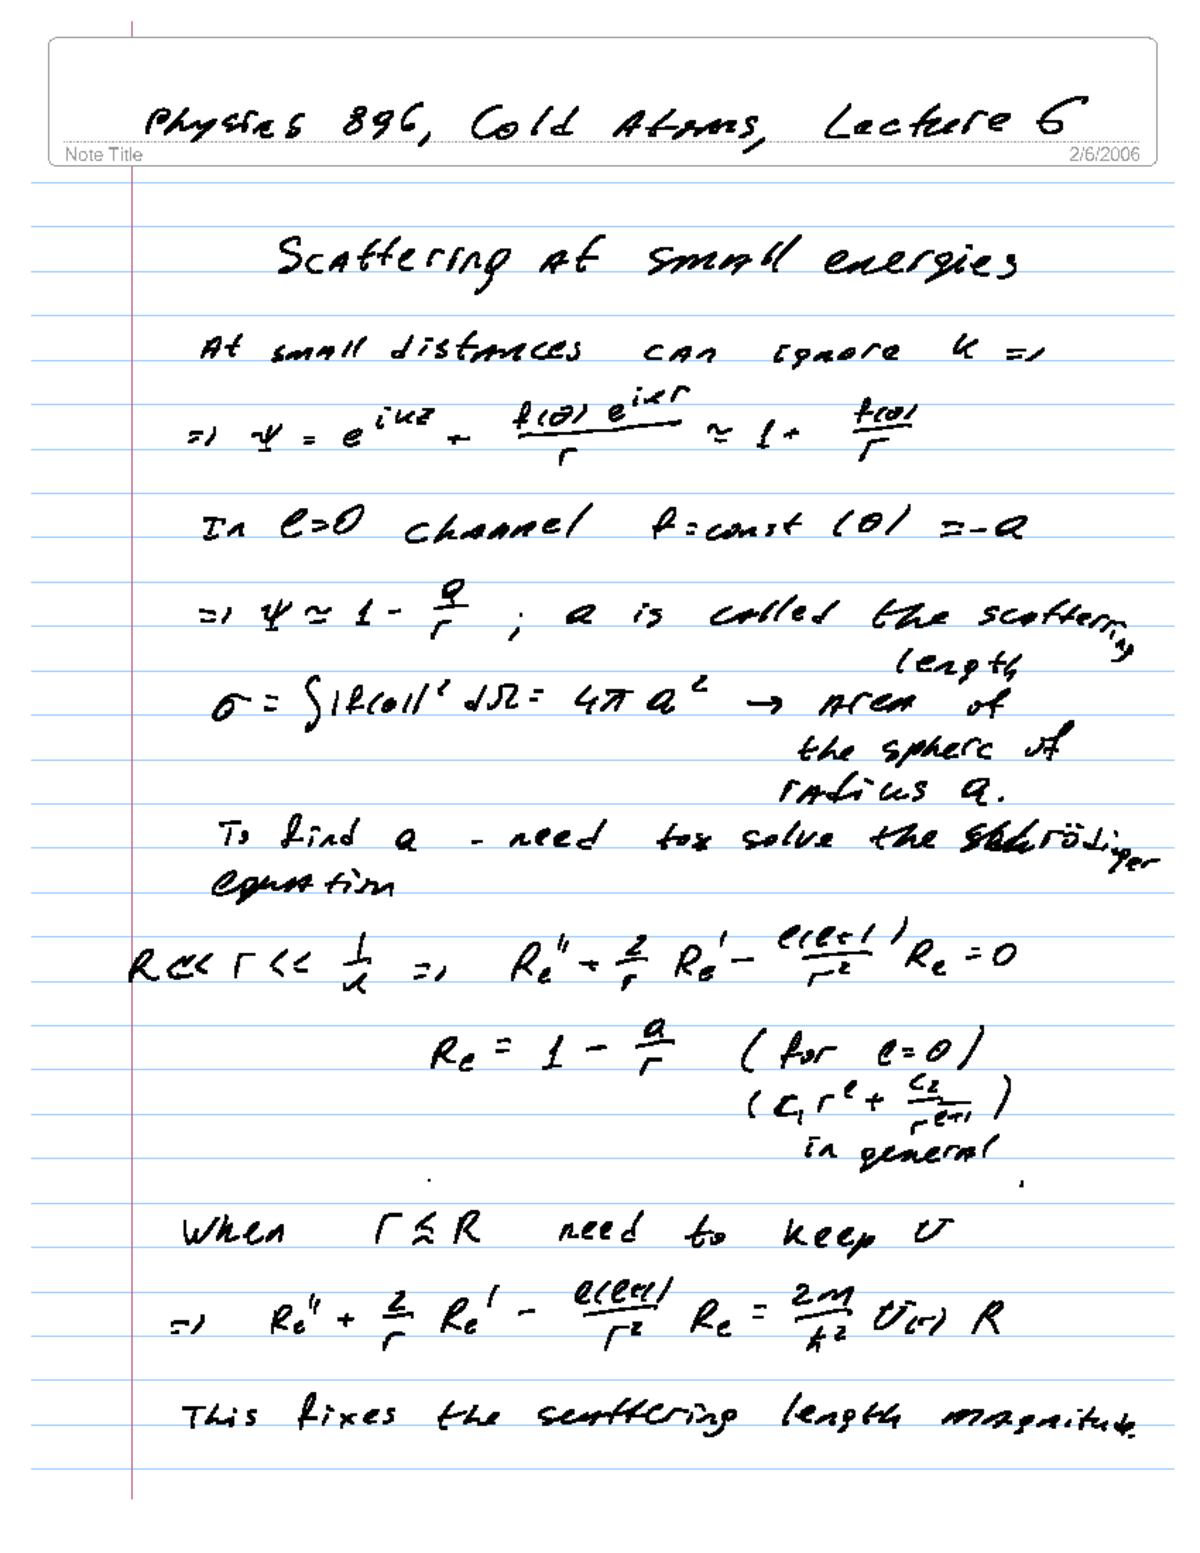 Physics 896, Cold Atoms, Lecture 6
Note Title
2/6/2006
Scattering at small energies
At small distances can ignore k =>
=> ψ = e^{ikz} + f(θ) e^{ikr} / r ≃ 1 + f(θ) / r
In l=0 channel f=const (θ) = -a
=> ψ ≃ 1 - a/r ; a is called the scattering
length
σ = ∫|f(θ)|² dΩ = 4π a² → area of
the sphere of
radius a.
To find a - need to solve the Schrödinger
equation
R << r << 1/k => R_l'' + 2/r R_l' - l(l+1)/r² R_l = 0
R_l = 1 - a/r (for l=0)
(c₁ r^l + c₂/r^{l+1})
in general
When r ≲ R need to keep U
=> R_l'' + 2/r R_l' - l(l+1)/r² R_l = 2m/ħ² U(r) R
This fixes the scattering length magnitude.